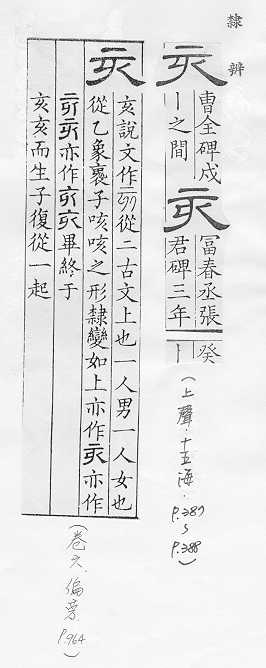 隸辨
亥
曹全碑戌
丨之間
亥
冨春丞張
君碑三年
癸
丨
(上聲·十五海·P.387~P.388)
亥
亥說文作從二古文上也一人男一人女也
從乙象褢子咳咳之形隸變如上亦作亥亦作
亦作畢終于
亥亥而生子復從一起
(卷六·偏旁·P.964)